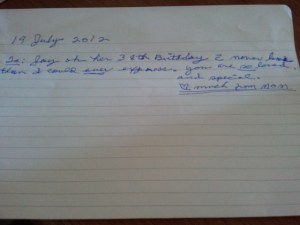 19 July 2012
To: Joy on her 36th Birthday I never
than I could ever express, you are so loved
and special.
♡ much from Mom